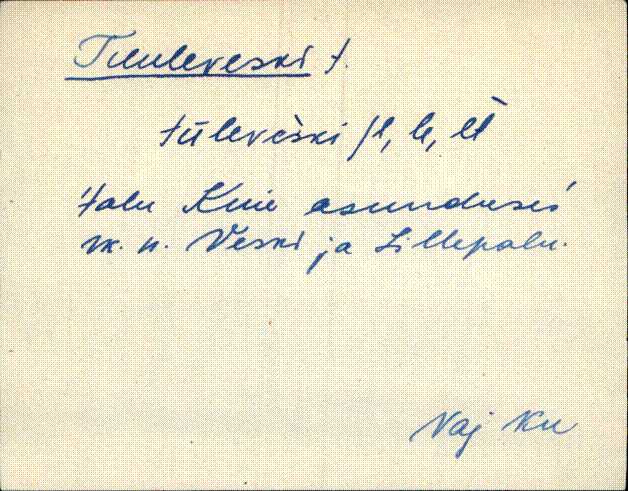 Tuuleveski t.
tūlevèski /l, le, lt
talu Kuie asunduses
vk. n. Veski ja Lillepalu.
Vaj Ku